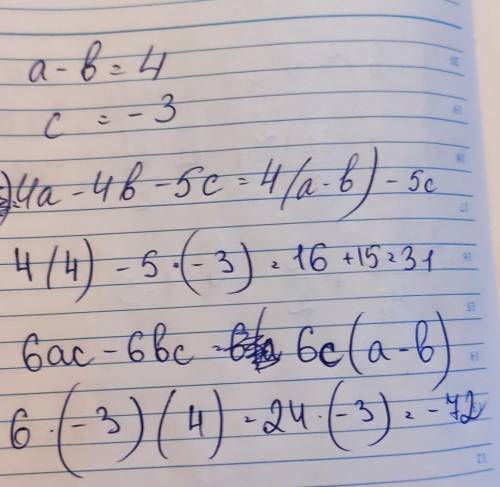 a - b = 4
c = -3
4a - 4b - 5c = 4(a - b) - 5c
4(4) - 5 · (-3) = 16 + 15 = 31
6ac - 6bc = 6c(a - b)
6 · (-3)(4) = 24 · (-3) = -72